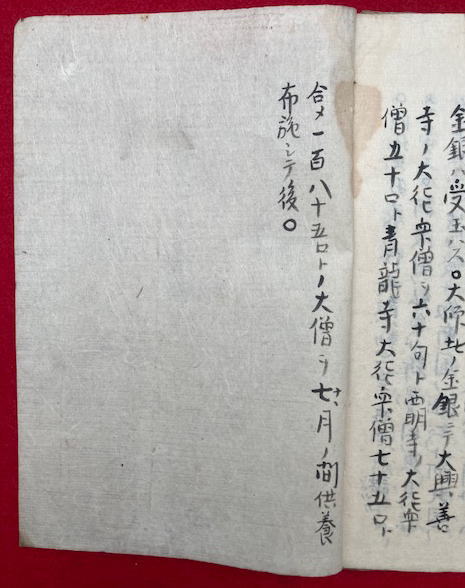 金銀ハ受玉ハス〇大師此ノ金銀ニテ大興善
寺ノ大徳衆僧ヲ六十句ト西明寺ノ大徳衆
僧五十口ト青龍寺大徳衆僧七十五口ト
合メ一百八十五口トノ大僧ヲ七ヶ月ノ間供養
布施シテ後〇